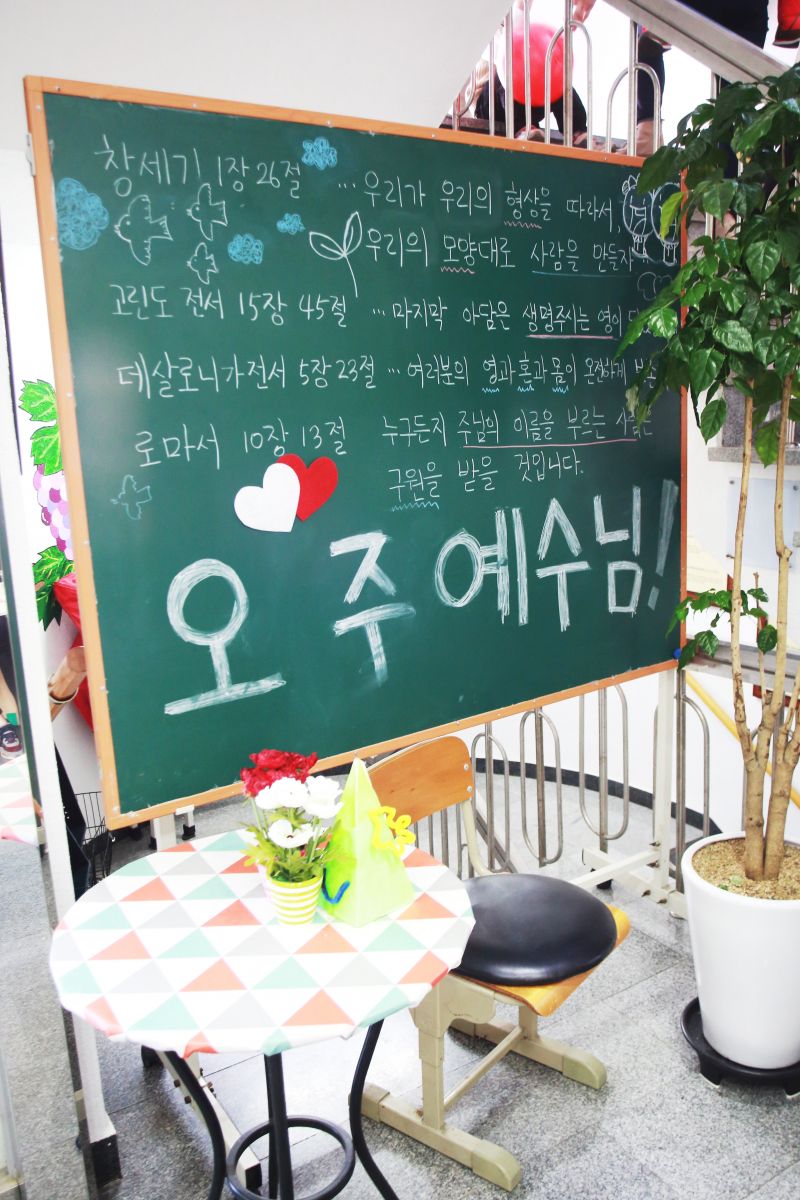 창세기 1장 26절 ... 우리가 우리의 형상을 따라서,
우리의 모양대로 사람을 만들자
고린도 전서 15장 45절 ... 마지막 아담은 생명주시는 영이
데살로니가전서 5장 23절 ... 여러분의 영과 혼과 몸이 온전하게
로마서 10장 13절 누구든지 주님의 이름을 부르는
구원을 받을 것입니다.
오 주 예수님!